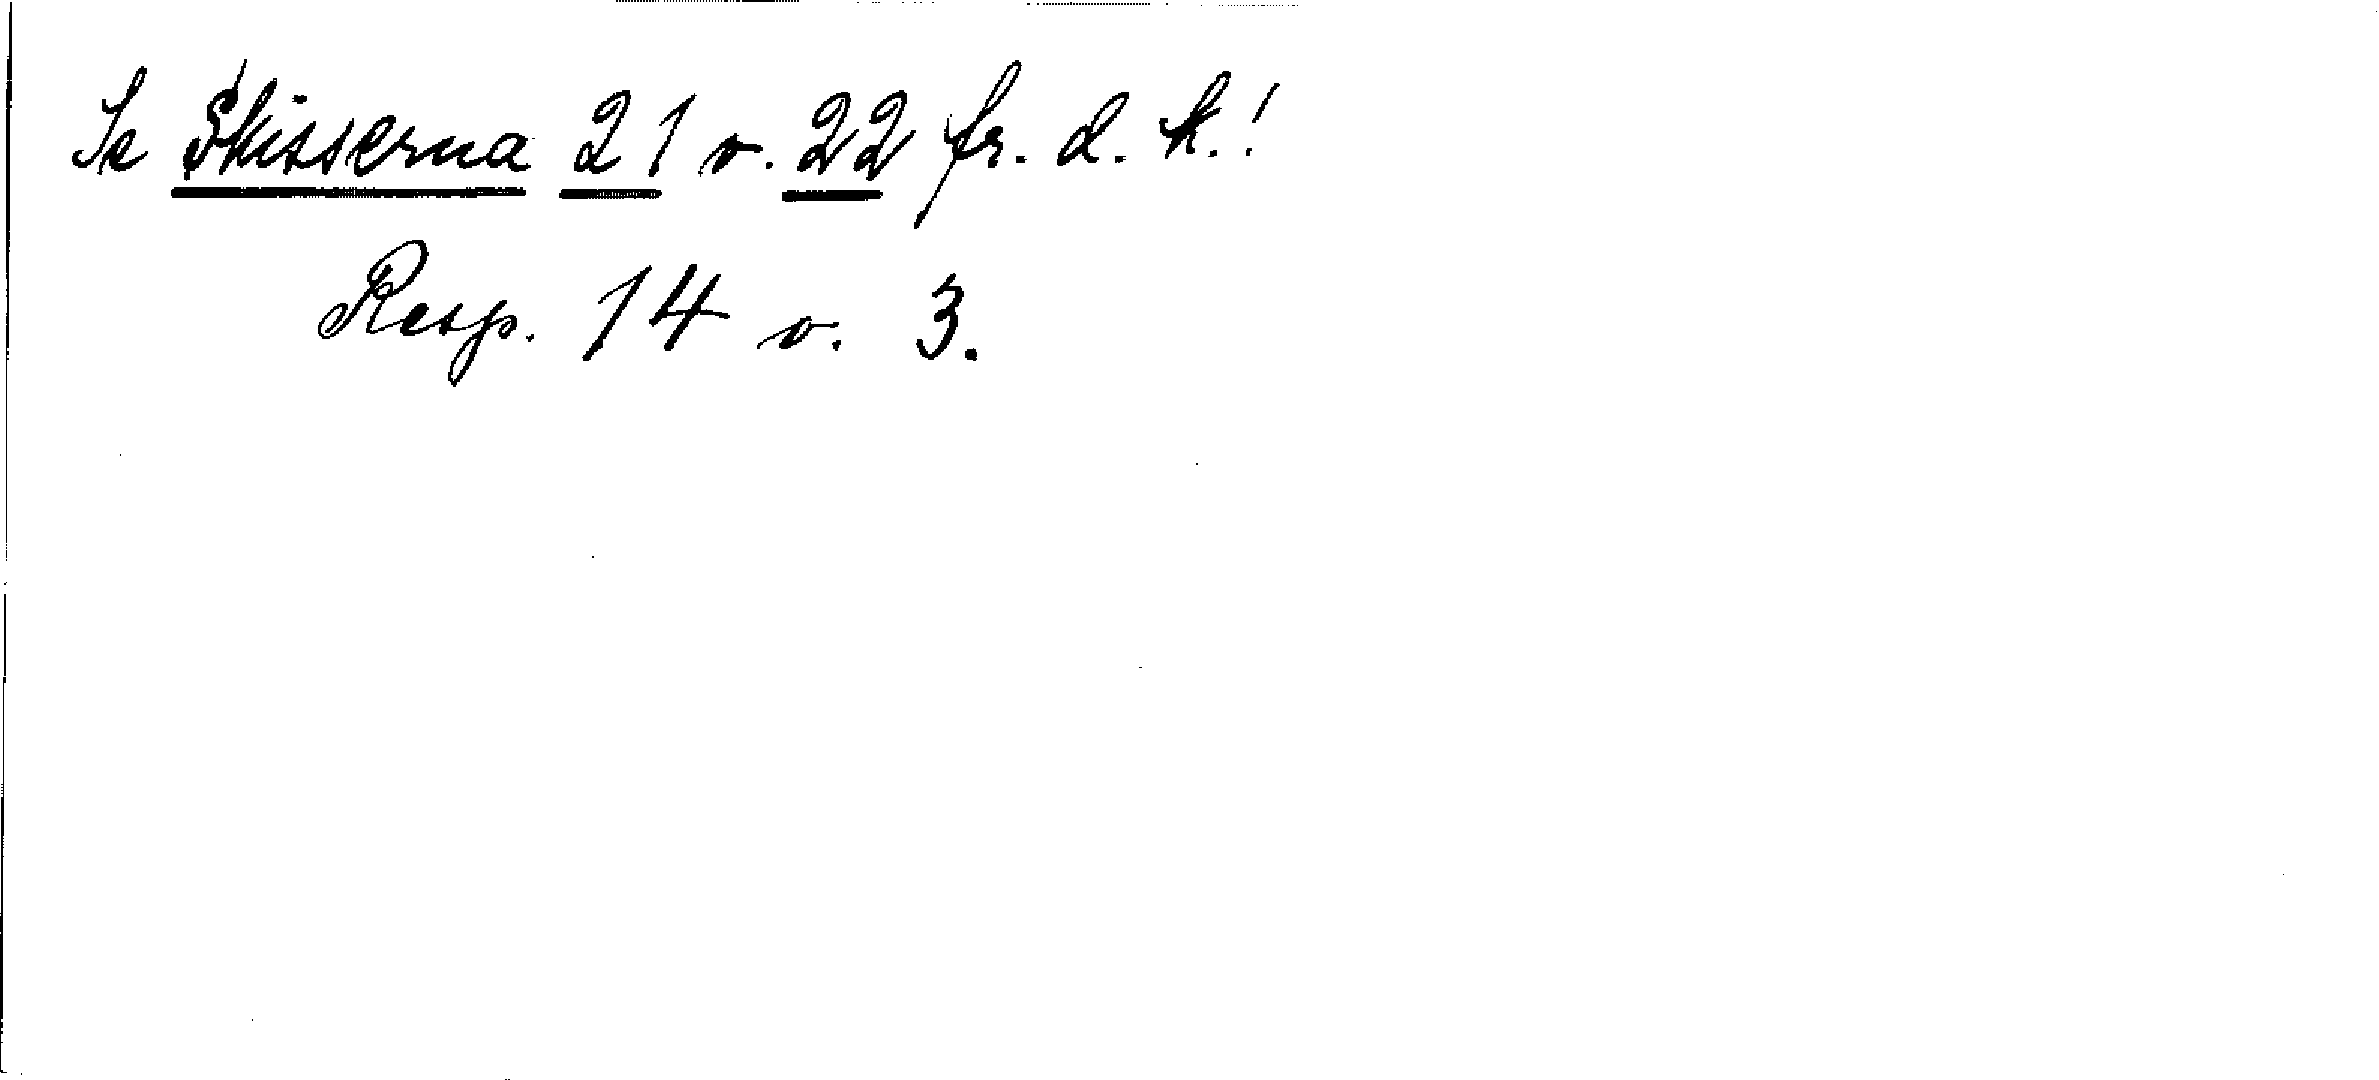 Se Skisserna 21 o. 22 fr. d. k.!
Resp. 14 o. 3.